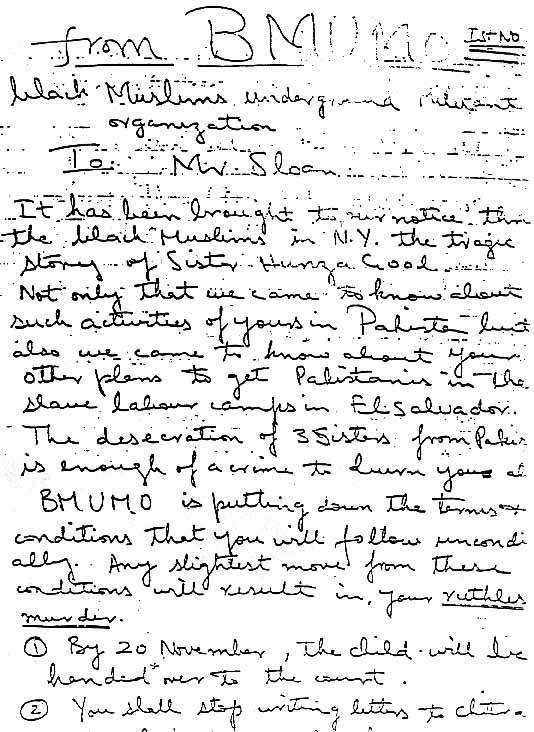 from BMUMO Ist No
black Muslims underground militant
organization
To Mr. Sloan
It has been brought to our notice thru
the black Muslims in N.Y. the tragic
story of Sister Hunza Good.
Not only that we came to know about
such activities of yours in Pakistan but
also we came to know about your
other plans to get Pakistanis in the
slave labour camps in El Salvador.
The desecration of 3 Sisters from Pakis
is enough of a crime to burn you
BMUMO is putting down the terms +
conditions that you will follow uncondi
ally. Any slightest move from these
conditions will result in, your ruthles
murder.
① By 20 November, the child will be
handed over to the court.
② You shall stop writing letters to